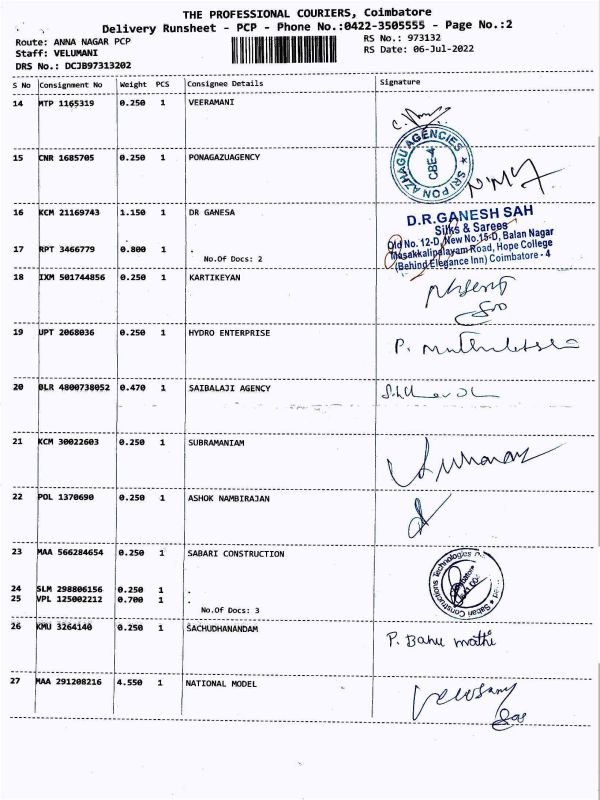 THE PROFESSIONAL COURIERS, Coimbatore
Delivery Runsheet - PCP - Phone No.:0422-3505555 - Page No.:2
Route: ANNA NAGAR PCP
Staff: VELUMANI
DRS No.: DCJB97313202
RS No.: 973132
RS Date: 06-Jul-2022
S No Consignment No Weight PCS Consignee Details Signature
14 MTP 1165319 0.250 1 VEERAMANI
15 CNR 1685705 0.250 1 PONAGAZUAGENCY
SRI PON AZHAGU AGENCIES
CBE-4
16 KCM 21169743 1.150 1 DR GANESA
D.R.GANESH SAH
Silks & Sarees
Old No. 12-D, New No.15-D, Balan Nagar
Masakkalipalayam Road, Hope College
(Behind Elegance Inn) Coimbatore - 4
17 RPT 3466779 0.800 1 .
No.Of Docs: 2
18 IXM 501744856 0.250 1 KARTIKEYAN
19 UPT 2068036 0.250 1 HYDRO ENTERPRISE
20 BLR 4800738052 0.470 1 SAIBALAJI AGENCY
21 KCM 30022603 0.250 1 SUBRAMANIAM
22 POL 1370690 0.250 1 ASHOK NAMBIRAJAN
23 MAA 566284654 0.250 1 SABARI CONSTRUCTION
24 SLM 298806156 0.250 1 .
25 VPL 125002212 0.700 1 .
No.Of Docs: 3
26 KMU 3264140 0.250 1 SACHUDHANANDAM
P. Banu mathi
27 MAA 291208216 4.550 1 NATIONAL MODEL